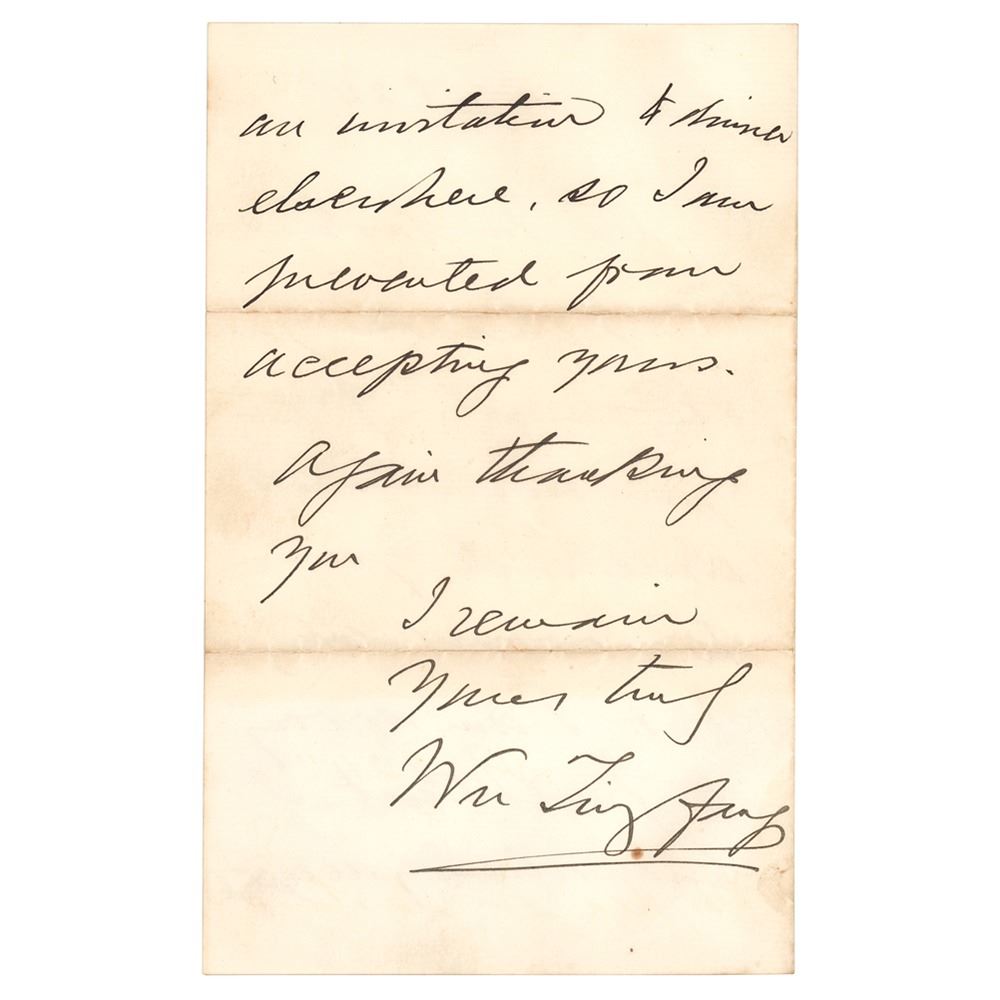 an invitation to dinner
elsewhere, so I am
prevented from
accepting yours.
Again thanking
you
I remain
Yours truly
Wu Ting Fang